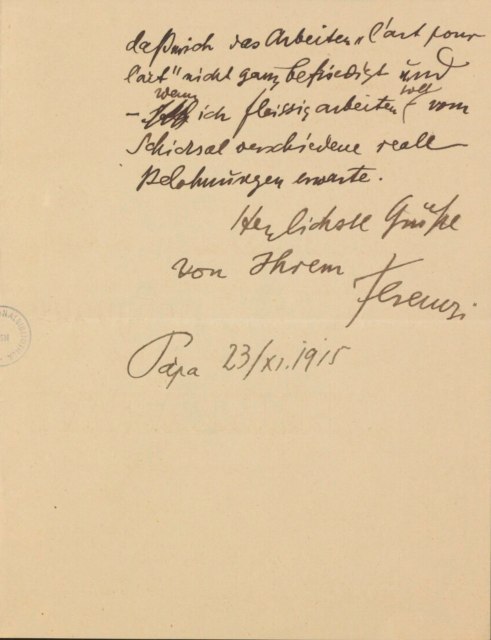 daß mich das Arbeiten „l'art pour
l'art" nicht ganz befriedigt und
wenn soll
– ich fleissig arbeiten – vom
Schicksal verschiedene reale
Belohnungen erwarte.
Herzlichste Grüße
von Ihrem
Ferenczi
Pápa 23/XI. 1915